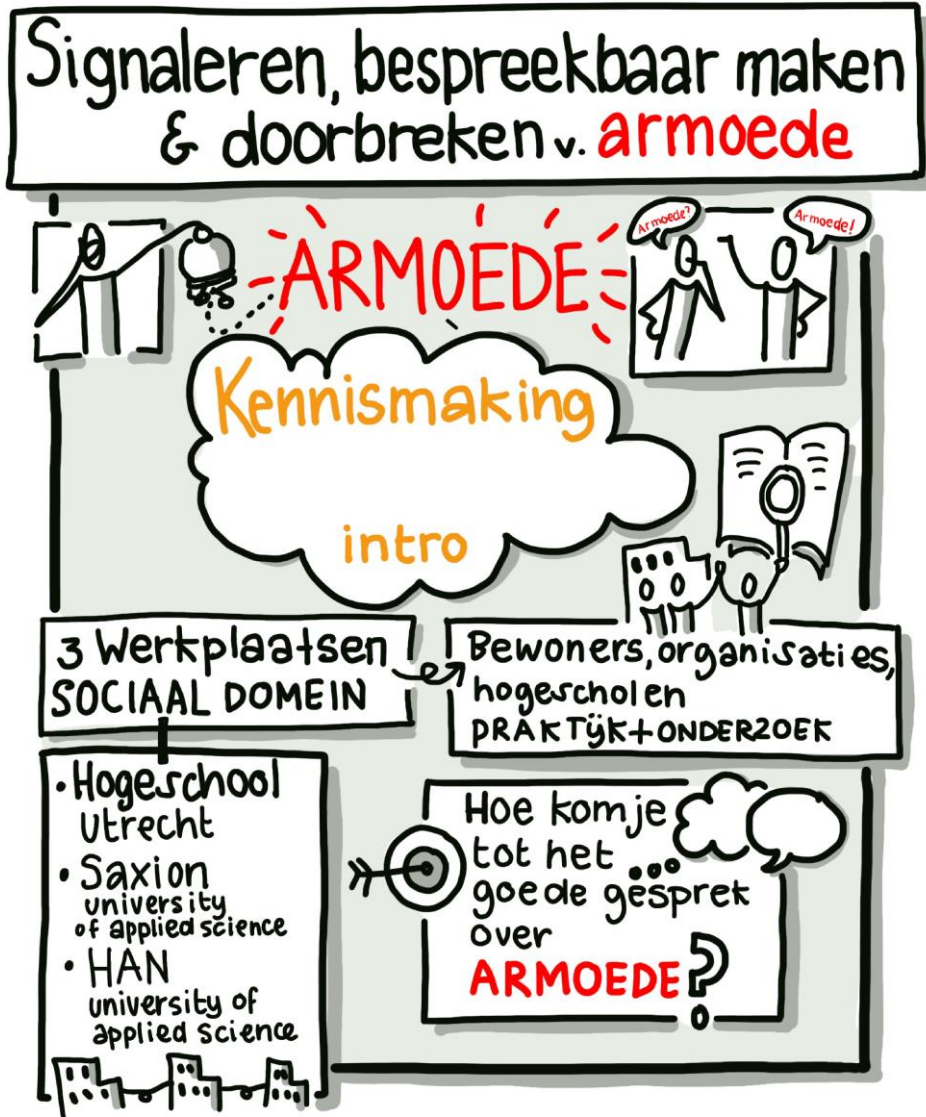 Signaleren, bespreekbaar maken
& doorbreken v. armoede
ARMOEDE
Armoede?
Armoede!
Kennismaking
intro
3 Werkplaatsen
SOCIAAL DOMEIN
Bewoners, organisaties,
hogescholen
PRAKTijK+ONDERZOEK
• Hogeschool
Utrecht
• Saxion
university
of applied science
• HAN
university of
applied science
Hoe kom je
tot het ...
goede gesprek
over
ARMOEDE?